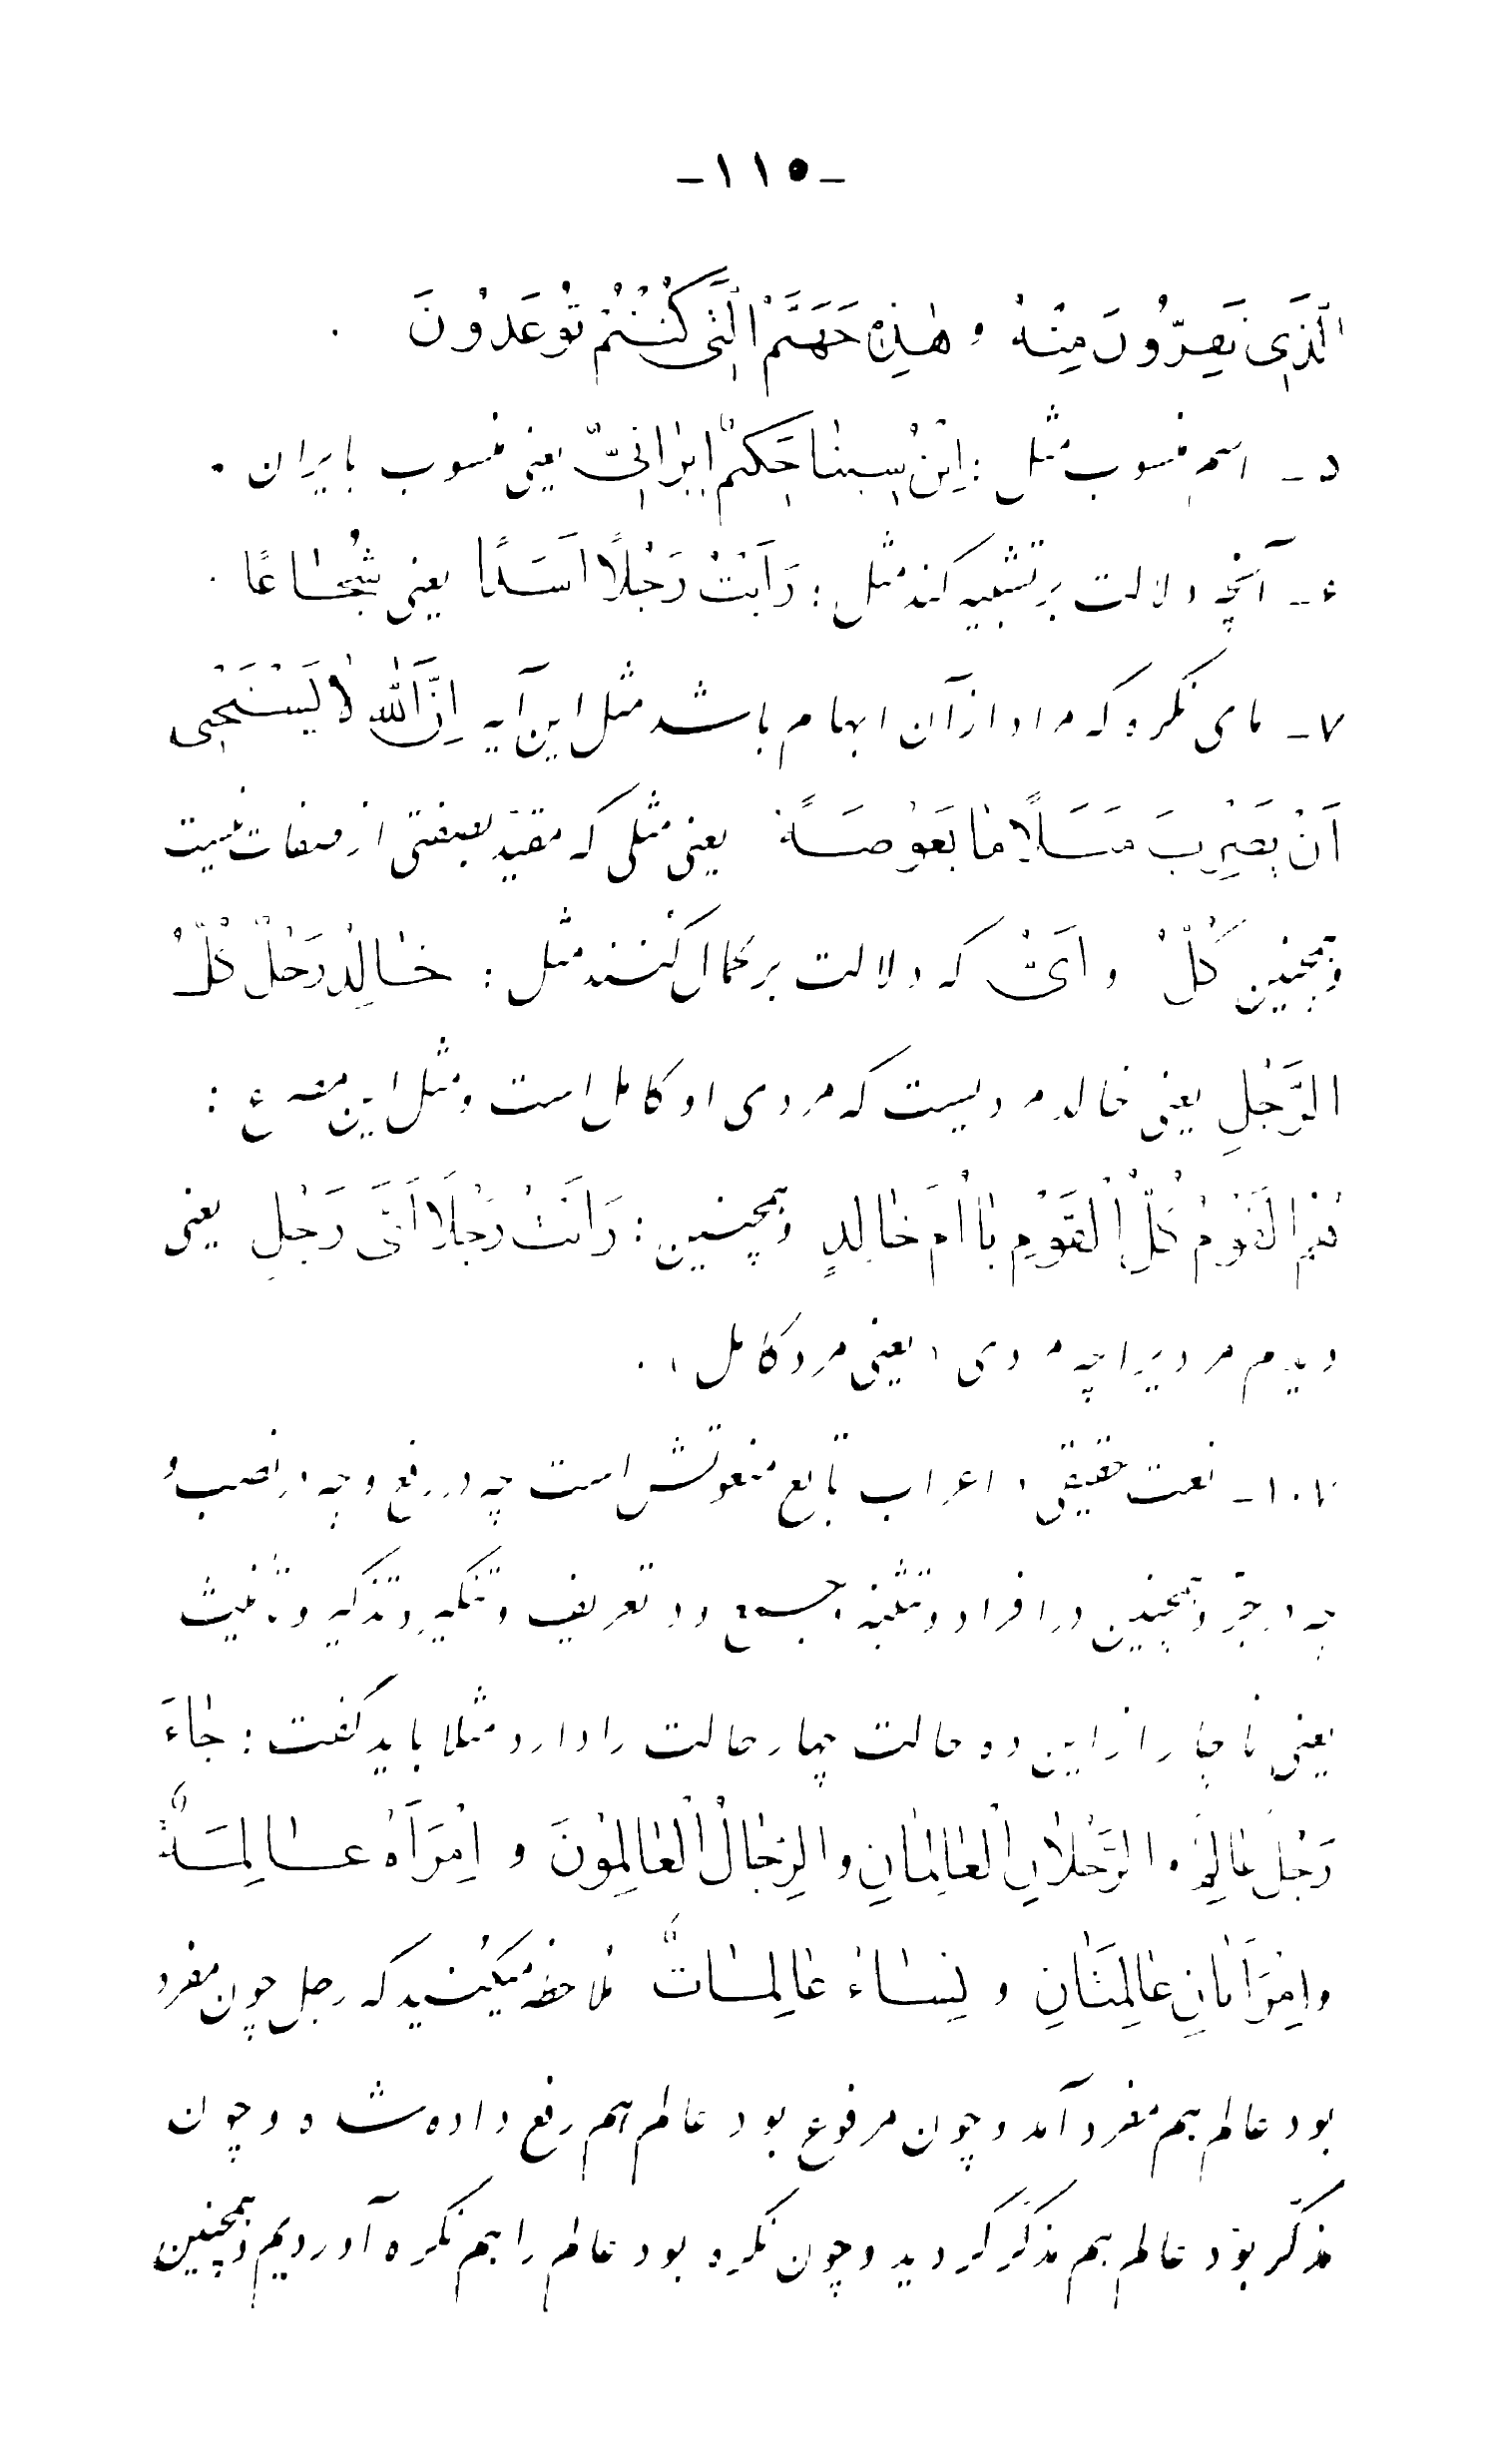 -۱۱۵-
الَّذی تَفِرُّونَ مِنْهُ و هٰذِهِ جَهَنَّمُ الَّتی کُنْتُمْ تُوعَدُونَ .
۵- اسم منسوب مثل : اِبْنُ سینٰا حَکیمٌ ایرٰانِیٌّ یعنی منسوب بایران .
۶- آنچه دلالت بر تشبیه کند مثل : رَاَیْتُ رَجُلًا اَسَدًا یعنی شُجٰاعًا .
۷- مای نکره که مراد از آن ابهام باشد مثل این آیه اِنَّ اللّٰهَ لٰا یَسْتَحْیی
اَنْ یَضْرِبَ مَثَلًا مٰا بَعُوضَةً یعنی مثلی که مقیّد بصفتی از صفات نیست
و همچنین کُلّ و اَیّ که دلالت بر کمال کنند مثل : خٰالِدٌ رَجُلٌ کُلُّ
الرَّجُلِ یعنی خالد مردیست که مردی او کامل است و مثل این مصرع :
هُمُ الْقَوْمُ کُلُّ الْقَوْمِ یٰا اُمَّ خٰالِدٍ و همچنین : رَاَیْتُ رَجُلًا اَیَّ رَجُلٍ یعنی
دیدم مردیرا چه مردی ، یعنی مرد کامل ، .
۱۰۷- نعت حقیقی در اعراب تابع منعوتش است چه در رفع و چه در نصب و
چه در جرّ و همچنین در افراد و تثنیه و جمع و در تعریف و تنکیر و تذکیر و تأنیث
یعنی ناچار از این ده حالت چهار حالت را دارد مثلا باید گفت : جٰاءَ
رَجُلٌ عٰالِمٌ و الرَّجُلٰانِ الْعٰالِمٰانِ و الرِّجٰالُ الْعٰالِمُونَ و اِمْرَاَةٌ عٰالِمَةٌ
و اِمْرَاَتٰانِ عٰالِمَتٰانِ و نِسٰاءٌ عٰالِمٰاتٌ ملاحظه میکنید که رجل چون مفرد
بود عالم هم مفرد آمد و چون مرفوع بود عالم هم رفع داده شد و چون
مذکّر بود عالم هم مذکّر گردید و چون نکره بود عالم را هم نکره آوردیم و همچنین